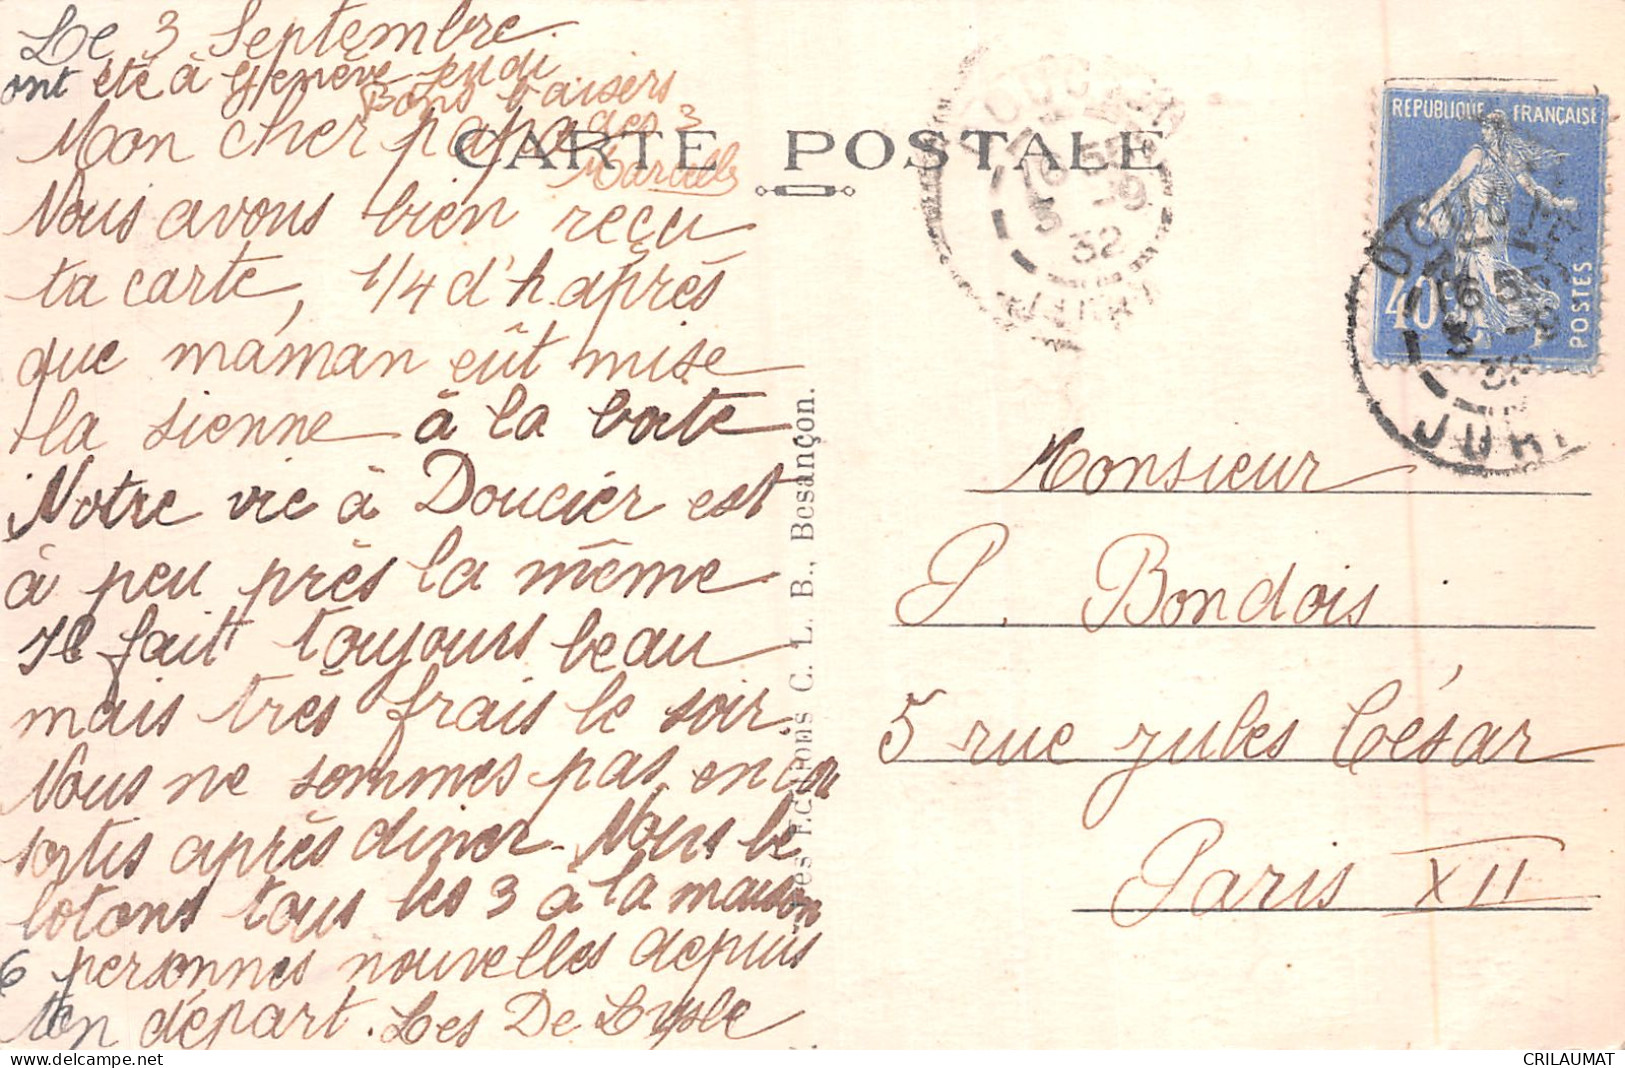 Le 3 Septembre.
ont été à Genève jeudi
Bons baisers
des 3
Marcelle
Mon cher papa
CARTE POSTALE
Nous avons bien reçu
ta carte, 1/4 d'h après
que maman eût mise
la sienne à la boite
Notre vie à Doucier est
à peu près la même
Il fait toujours beau
mais très frais le soir.
Nous ne sommes pas encore
sortis après diner. Nous be
lotons tous les 3 à la maison
6 personnes nouvelles depuis
ton départ. Les De Lysle
C. L. B., Besançon.
REPUBLIQUE FRANÇAISE
40c
POSTES
DOUCIER
16 55
3 -9
32
JURA
DOUCIER
16 55
3 -9
32
JURA
Monsieur
P. Bondois
5 rue Jules César
Paris XII
CRILAUMAT
delcampe.net